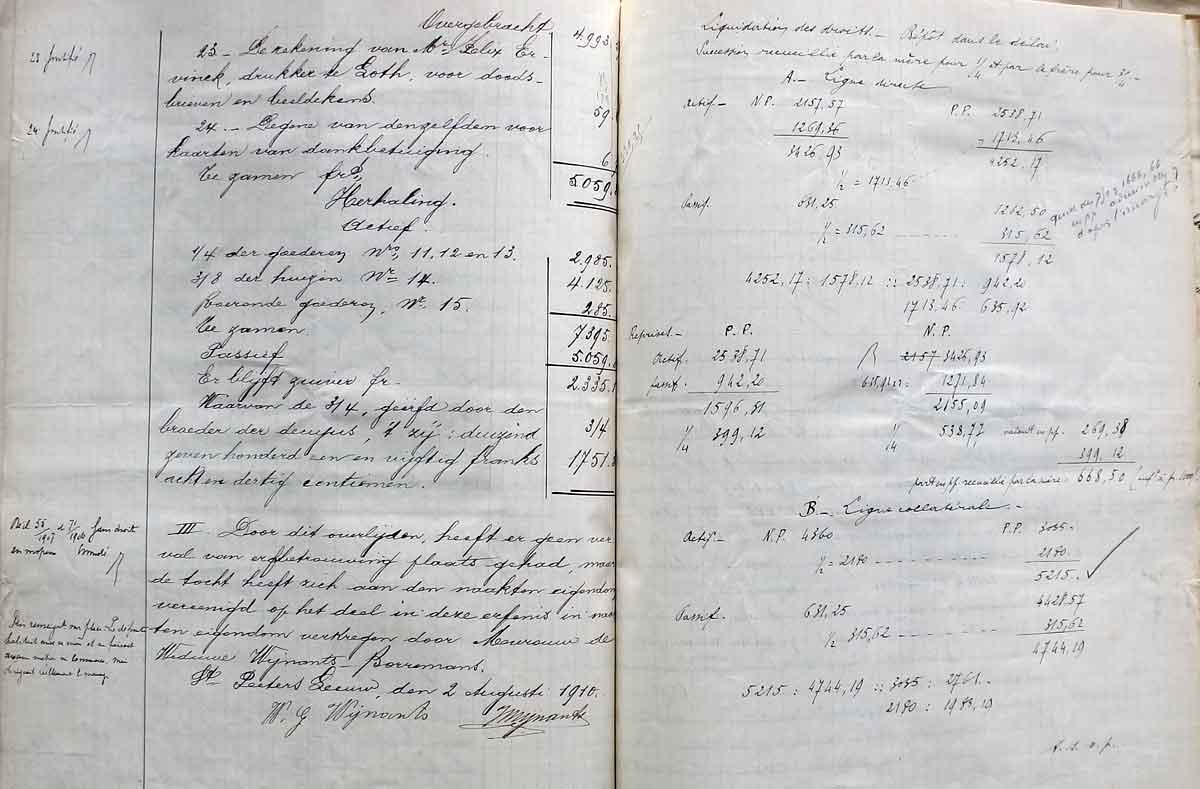 Overgebracht 4.993.
23 justifié
23.- De rekening van Mr Felix Er-
vinck, drukker te Goth, voor doods-
brieven en beeldekens. 59.
24 justifié
24.- Degene van denzelfden voor
kaarten van dankbetuiging. 6
Te zamen frs, 5.059.
Herhaling.
Actief.
1/4 der goederen Nos, 11, 12 en 13. 2.985.
3/8 der huizen Nr 14. 4.125.
Roerende goederen, Nr. 15. 285.
Te zamen. 7395.
Passief 5.059.
Er blijft zuiver fr. 2.335.1
Waarvan de 3/4, geërfd door den
broeder der decujus, 't zij: duizend 3/4
zeven honderd een en vijftig franks 1751.
acht en dertig centiemen.
III.- Door dit overlijden, heeft er geen ver
val van erfbetrouwing plaats gehad, maar
de tocht heeft zich aan den naakten eigendom
vereenigd op het deel in deze erfenis in naak
ten eigendom verkregen door Mevrouw de
Weduwe Wijnants-Borremans.
St Peeters Leeuw, den 2 Augusti 1910.
W. G Wijnants JWijnants
Liquidation des droits.- Dépôt dans le délai.
Succession recueillie par la mère pour 1/4 et par le frère pour 3/4.-
A.- Ligne directe
Actif.- N.P. 2157,57 P.P. 2538,71
1269,36 1713,46
3426,93 4252,17
1/2 = 1713,46
Passif. 631,25 1262,50
1/2 = 315,62 315,62
1578,12
4252,17 : 1578,12 :: 2538,71 : 942,20
1713,46 635,92
Reprises.- P.P. N.P.
Actif. 2538,71 2157 3426,93
passif. 942,20 635,92 x 2 = 1271,84
1596,51 2155,09
1/4 399,12 1/4 538,77 269,38
399,12
part en pp. recueillie par la mère: 668,50
B.- Ligne collatérale.-
Actif.- N.P. 4360 P.P. 3035.-
1/2 = 2180 2180.
5215.
Passif. 631,25 4428.57
1/2 315,62 315,62
4744,19
5215 : 4744,19 :: 3035 : 2761.-
2180 : 1983,19